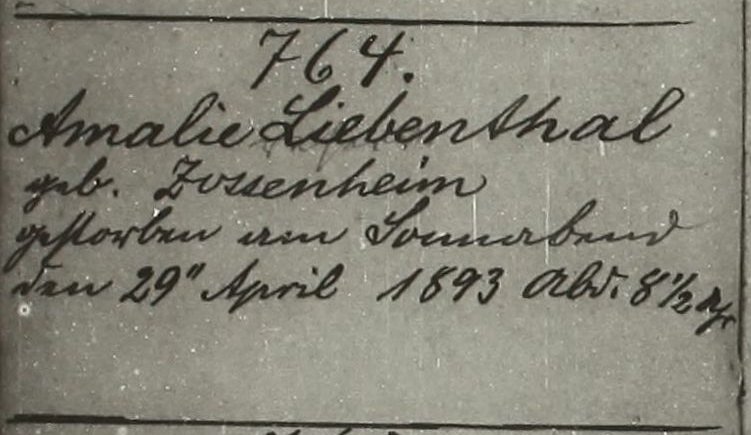 764.
Amalie Liebenthal
geb. Zossenheim
gestorben am Sonnabend
den 29" April 1893 Abd. 8 1/2